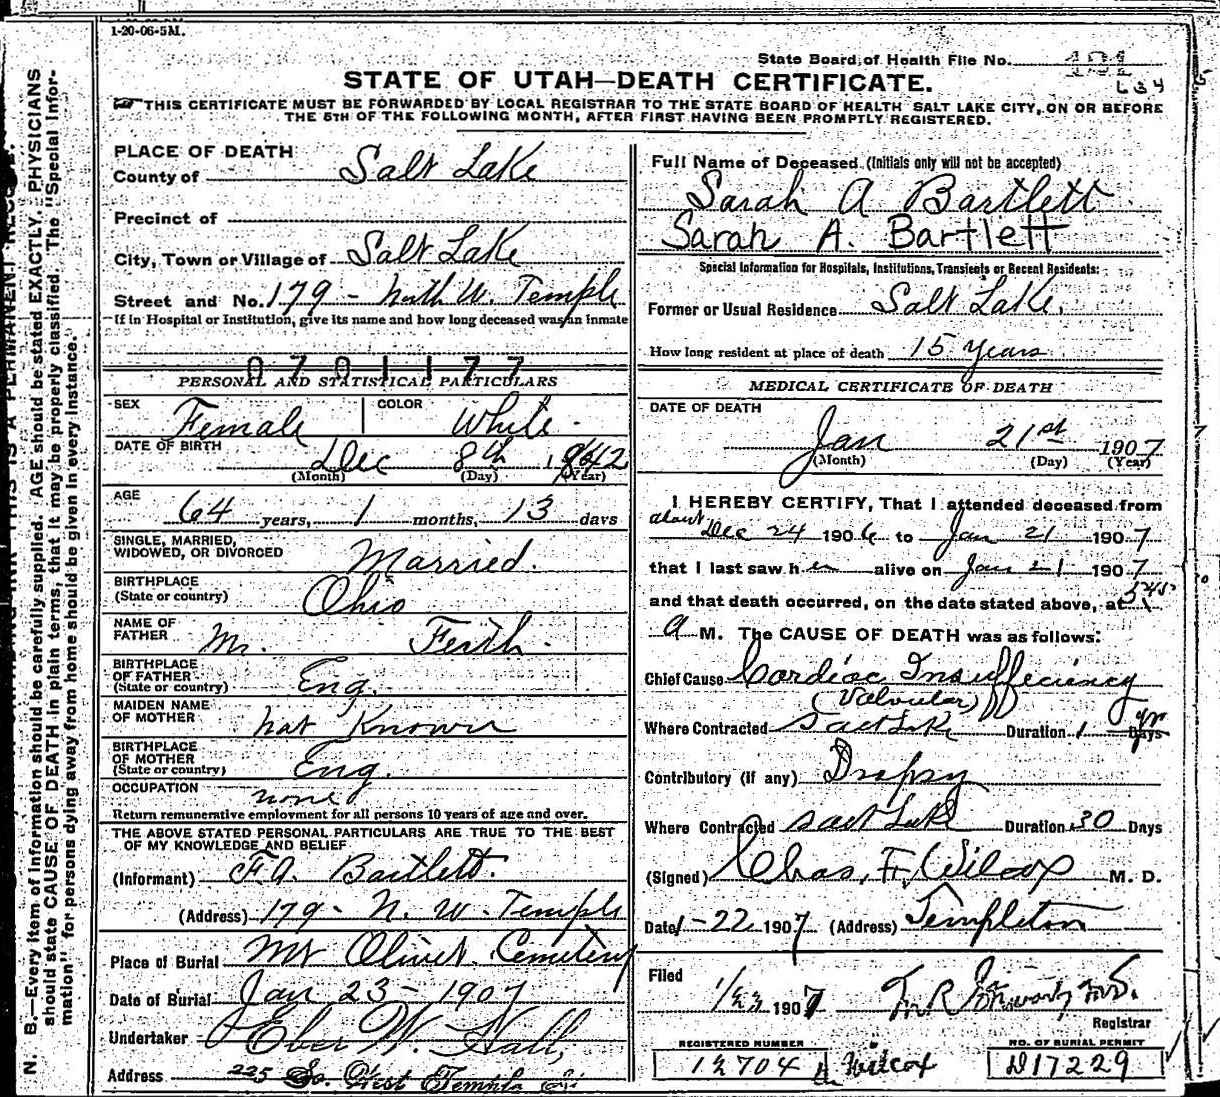 1-20-06-5M.
State Board of Health File No. 191
634
STATE OF UTAH—DEATH CERTIFICATE.
THIS CERTIFICATE MUST BE FORWARDED BY LOCAL REGISTRAR TO THE STATE BOARD OF HEALTH SALT LAKE CITY, ON OR BEFORE
THE 5TH OF THE FOLLOWING MONTH, AFTER FIRST HAVING BEEN PROMPTLY REGISTERED.
PLACE OF DEATH
County of Salt Lake
Precinct of
City, Town or Village of Salt Lake
Street and No. 179 - North W. Temple
If in Hospital or Institution, give its name and how long deceased was an inmate
0701177
PERSONAL AND STATISTICAL PARTICULARS
SEX Female COLOR White.
DATE OF BIRTH Dec 8th 1842
(Month) (Day) (Year)
AGE 64 years, 1 months, 13 days
SINGLE, MARRIED,
WIDOWED, OR DIVORCED Married.
BIRTHPLACE
(State or country) Ohio
NAME OF
FATHER Mr. Firth.
BIRTHPLACE
OF FATHER
(State or country) Eng.
MAIDEN NAME
OF MOTHER not Known
BIRTHPLACE
OF MOTHER
(State or country) Eng.
OCCUPATION none
Return remunerative employment for all persons 10 years of age and over.
THE ABOVE STATED PERSONAL PARTICULARS ARE TRUE TO THE BEST
OF MY KNOWLEDGE AND BELIEF
(Informant) F.A. Bartlett.
(Address) 179 - N. W. Temple
Place of Burial Mt Olivet Cemetery
Date of Burial Jan 23 - 1907
Undertaker Eber W. Hall,
Address 225 So. West Temple St
Full Name of Deceased (Initials only will not be accepted)
Sarah A Bartlett
Sarah A. Bartlett
Special Information for Hospitals, Institutions, Transients or Recent Residents:
Former or Usual Residence Salt Lake.
How long resident at place of death 15 years
MEDICAL CERTIFICATE OF DEATH
DATE OF DEATH
Jan 21st 1907
(Month) (Day) (Year)
I HEREBY CERTIFY, That I attended deceased from
about Dec 24 1906 to Jan 21 1907
that I last saw her alive on Jan 21 1907
and that death occurred, on the date stated above, at 5 45
A M. The CAUSE OF DEATH was as follows:
Chief Cause Cardiac Insufficiency
(Valvular)
Where Contracted Salt Lake Duration 1 yr Days
Contributory (if any) Dropsy
Where Contracted Salt Lake Duration 30 Days
(Signed) Chas. F. Wilcox M. D.
Date 1-22 1907 (Address) Templeton
Filed
1/23 1907 M.D.
Registrar
REGISTERED NUMBER
12704
Dr Wilcox
NO. OF BURIAL PERMIT
D17229
N. B.—Every item of information should be carefully supplied. AGE should be stated EXACTLY. PHYSICIANS
should state CAUSE OF DEATH in plain terms, that it may be properly classified. The "Special Infor-
mation" for persons dying away from home should be given in every instance.
THIS IS A PERMANENT